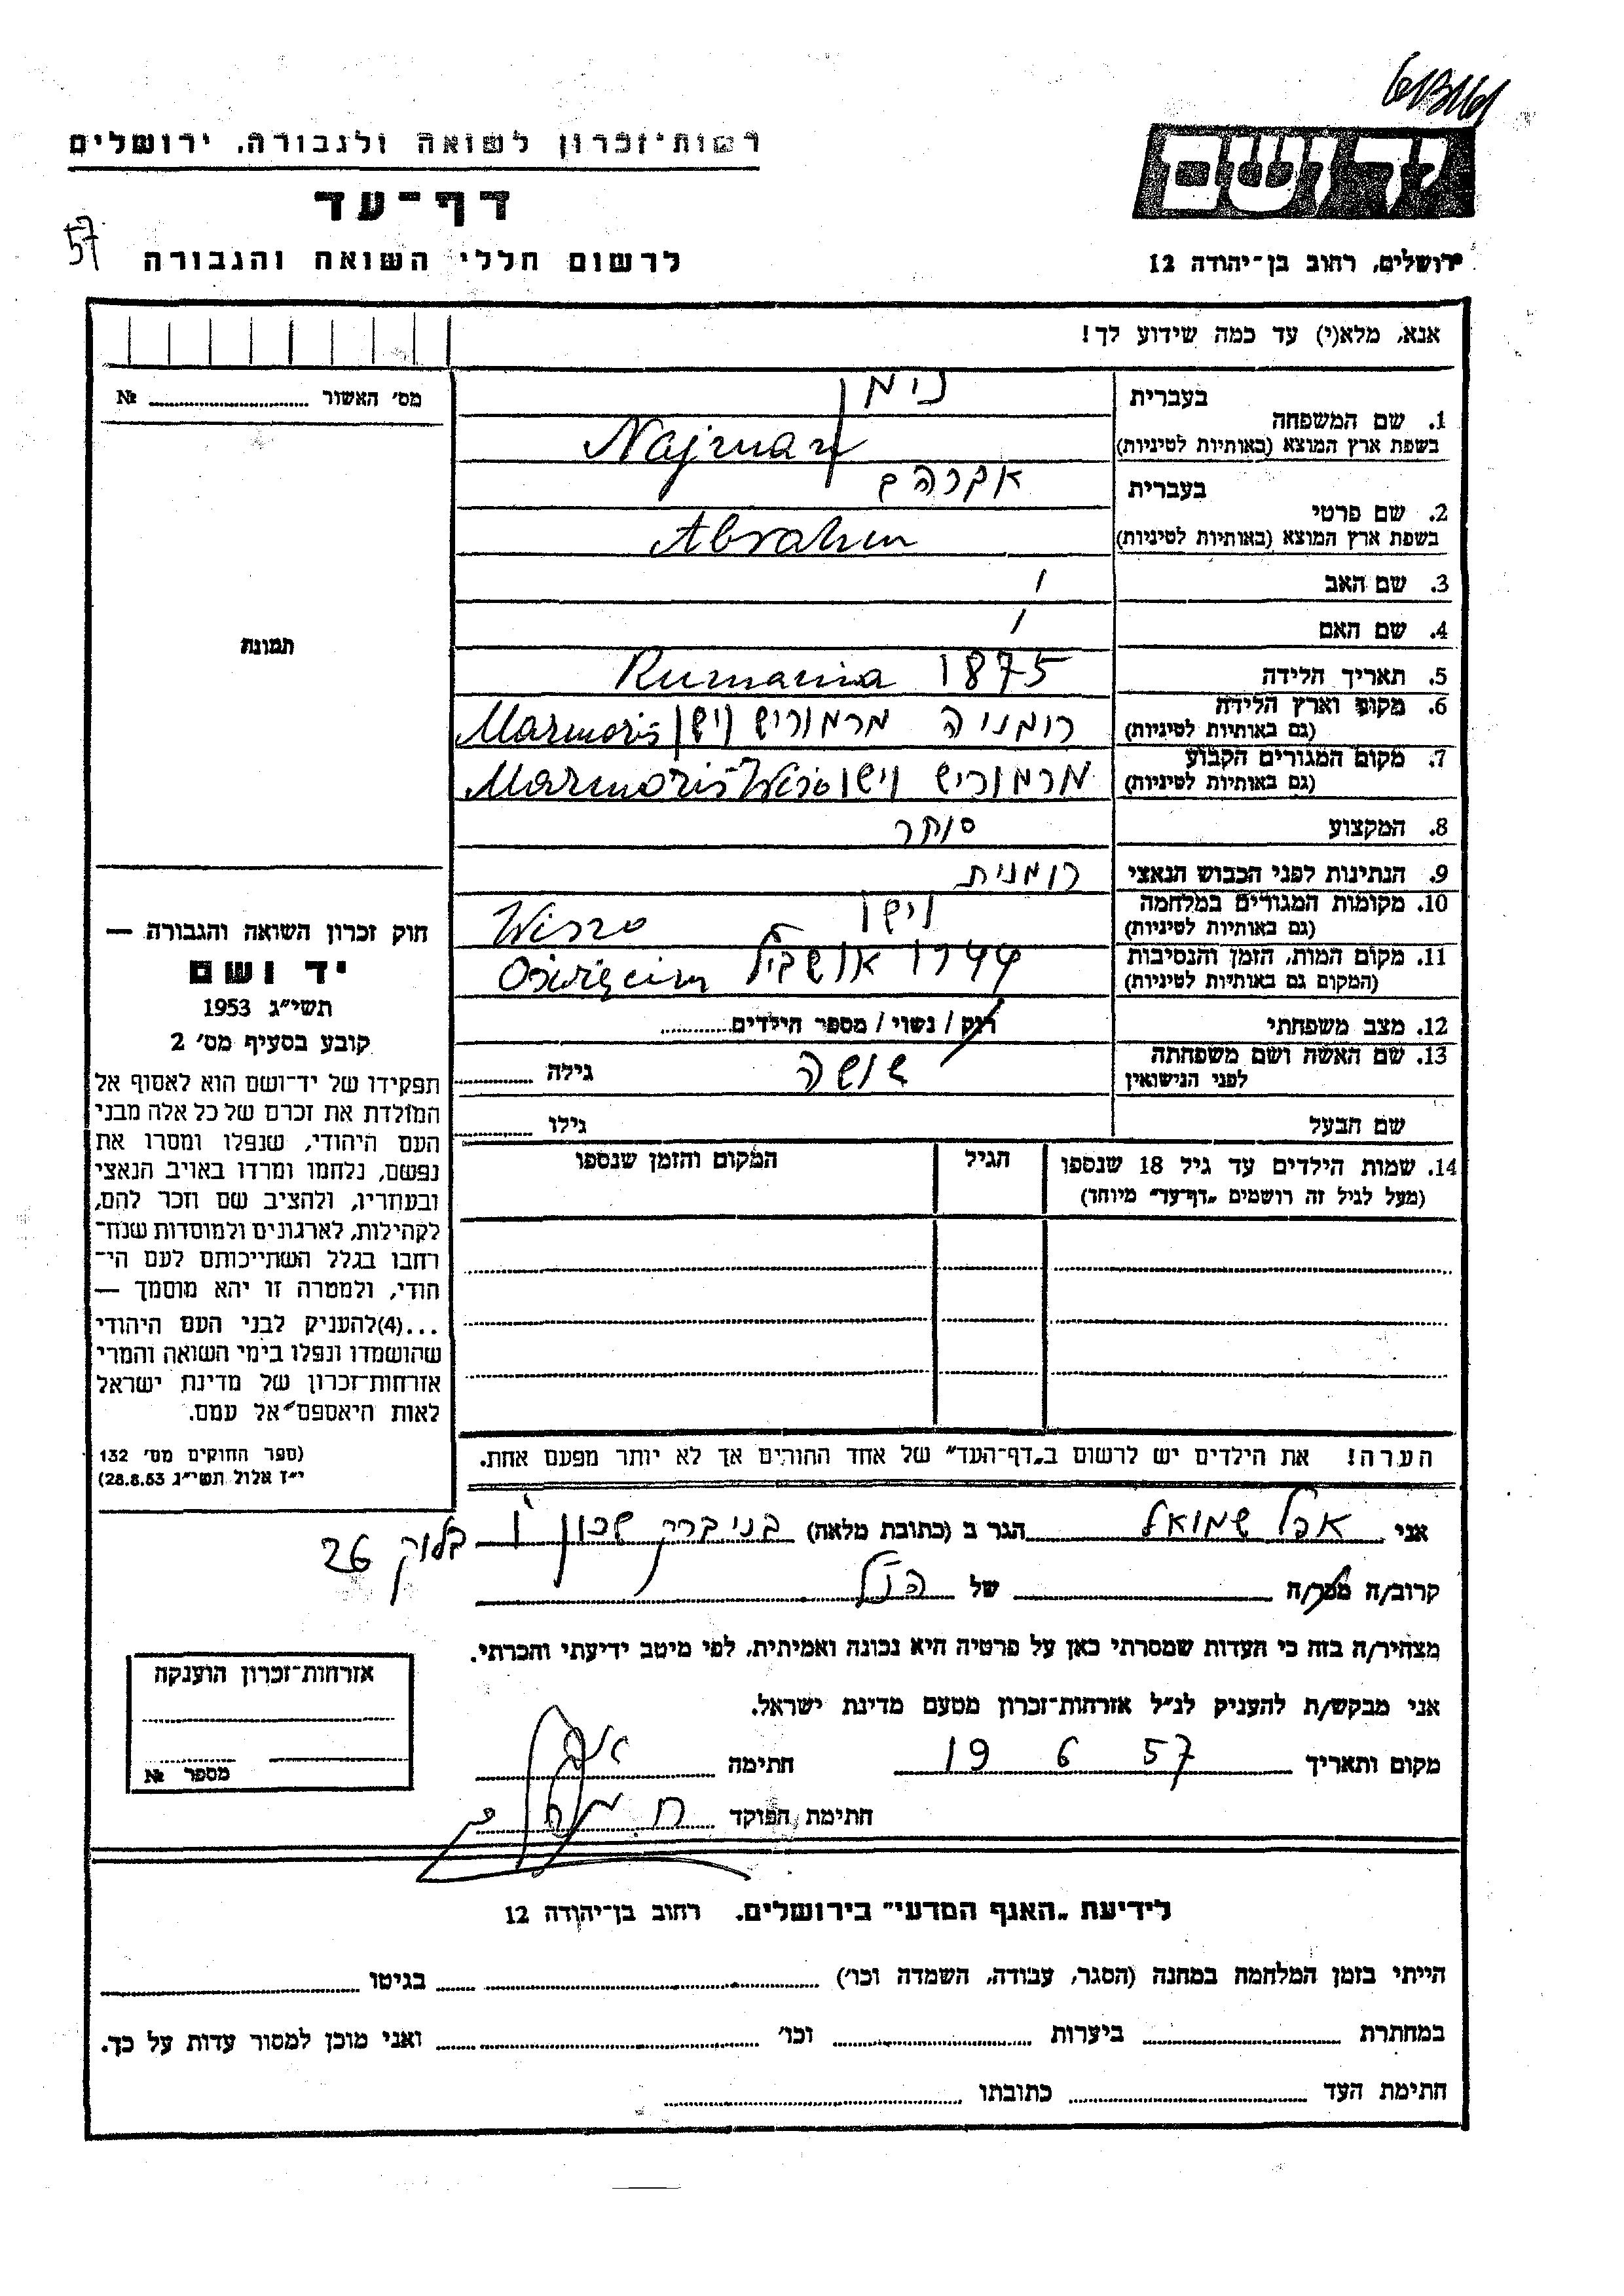 רשות-זכרון לשואה ולגבורה, ירושלים
דף-עד
57
לרשום חללי השואה והגבורה
ירושלים, רחוב בן-יהודה 12
אנא, מלא(י) עד כמה שידוע לך!
מס׳ האשור № ........
תמונה
בעברית נימן
1. שם המשפחה
בשפת ארץ המוצא (באותיות לטיניות) Najman
בעברית אברהם
2. שם פרטי
בשפת ארץ המוצא (באותיות לטיניות) Abraham
3. שם האב /
4. שם האם /
5. תאריך הלידה 1875 Rumania
6. מקום וארץ הלידה רומניה מרמוריש וישו Marmoris
(גם באותיות לטיניות)
7. מקום המגורים הקבוע מרמוריש וישו Marmoris Wiso
(גם באותיות לטיניות)
8. המקצוע סוחר
9. הנתינות לפני הכבוש הנאצי רומנית
10. מקומות המגורים במלחמה וישו Wisso
(גם באותיות לטיניות)
11. מקום המות, הזמן והנסיבות 1944 Oświęcim
(המקום גם באותיות לטיניות)
12. מצב משפחתי רוק / נשוי / מספר הילדים........
13. שם האשה ושם משפחתה שושה גילה ........
לפני הנישואין
שם הבעל גילו ........
14. שמות הילדים עד גיל 18 שנספו הגיל המקום והזמן שנספו
(מעל לגיל זה רושמים „דף-עד״ מיוחד)
הערה! את הילדים יש לרשום ב„דף-העד״ של אחד ההורים אך לא יותר מפעם אחת.
חוק זכרון השואה והגבורה —
יד ושם
תשי״ג 1953
קובע בסעיף מס׳ 2
תפקידו של יד-ושם הוא לאסוף אל
המולדת את זכרם של כל אלה מבני
העם היהודי, שנפלו ומסרו את
נפשם, נלחמו ומרדו באויב הנאצי
ובעוזריו, ולהציב שם וזכר להם,
לקהילות, לארגונים ולמוסדות שנח-
רחבו בגלל השתייכותם לעם הי-
הודי, ולמטרה זו יהא מוסמך —
...(4)להעניק לבני העם היהודי
שהושמדו ונפלו בימי השואה והמרי
אזרחות-זכרון של מדינת ישראל
לאות היאספם אל עמם.
(ספר החוקים מס׳ 132
י״ז אלול תשי״ג 28.8.53)
אני אפל שמואל הגר ב (כתובת מלאה) בני ברק שכון ו בלוק 26
קרוב/ה מכר/ה ........ של הנ״ל
מצהיר/ה בזה כי העדות שמסרתי כאן על פרטיה היא נכונה ואמיתית, לפי מיטב ידיעתי והכרתי.
אני מבקש/ת להעניק לנ״ל אזרחות-זכרון מטעם מדינת ישראל.
מקום ותאריך 19 6 57 חתימה
חתימת הפוקד
אזרחות-זכרון הוענקה
מספר №
לידיעת „האגף המדעי״ בירושלים. רחוב בן-יהודה 12
הייתי בזמן המלחמה במחנה (הסגר, עבודה, השמדה וכו׳) ........ בגיטו ........
במחתרת ........ ביערות ........ וכו׳ ........ ואני מוכן למסור עדות על כך.
חתימת העד ........ כתובתו ........